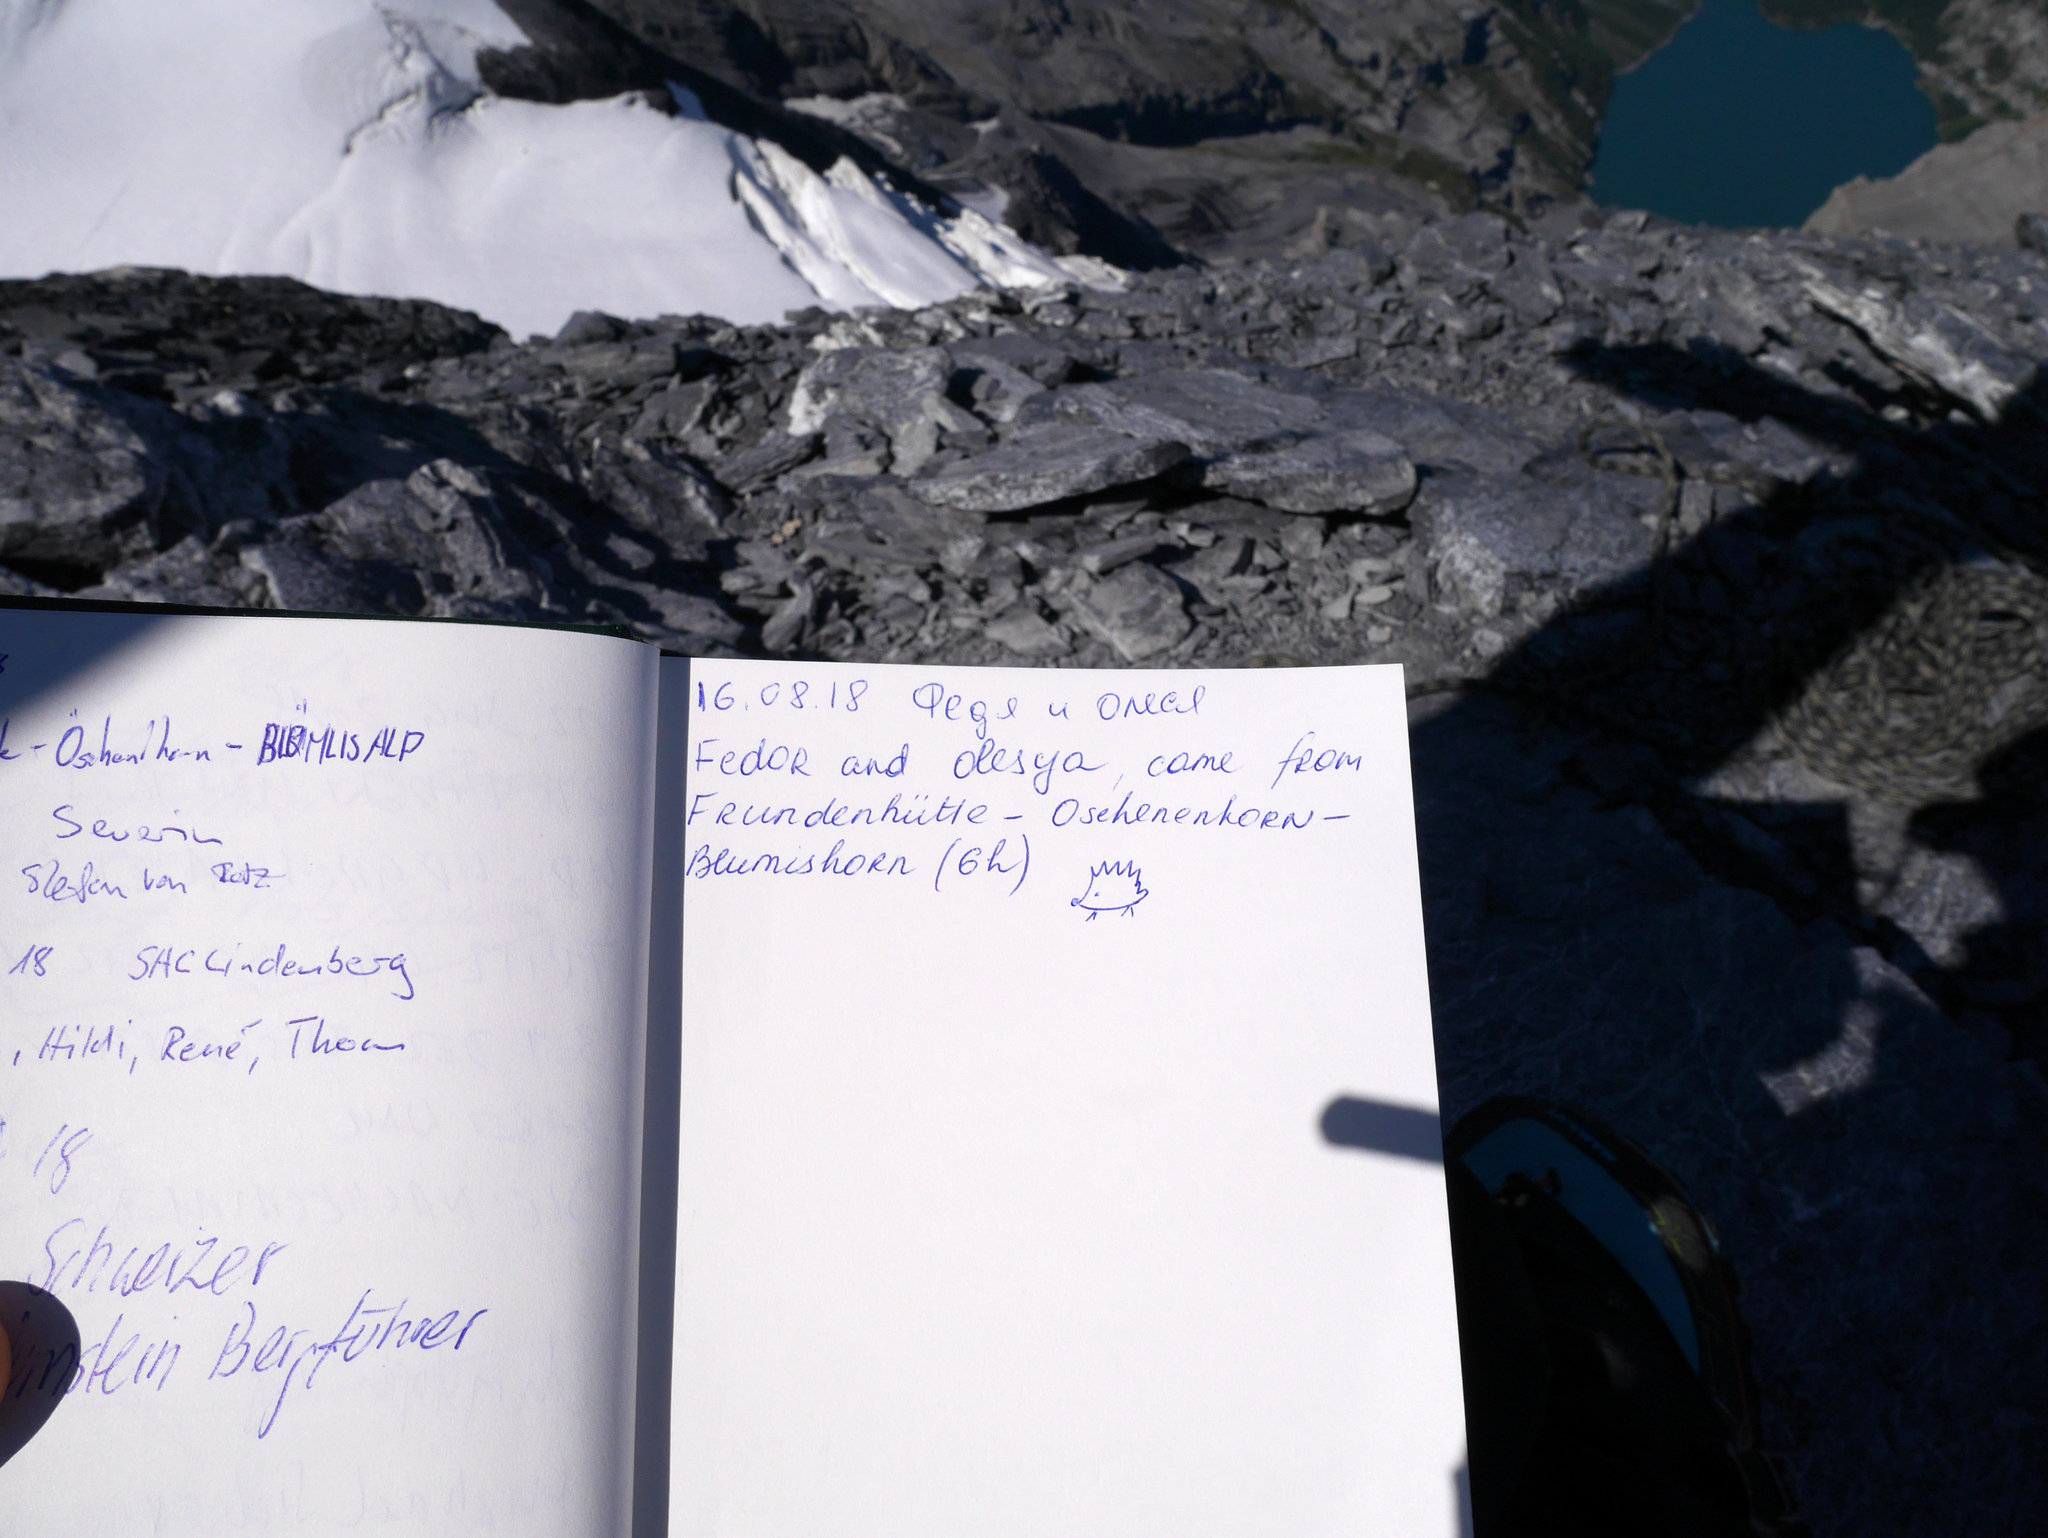 - Öschenhorn - BLÜMLISALP
Severin
Stefan von
18 SAC Lindenberg
, Hildi, René, Thom
18
Schweizer
Bergführer
16.08.18 Федя и Олеся
Fedor and Olesya, came from
Frundenhütte - Oschenenhorn -
Blumishorn (6h)